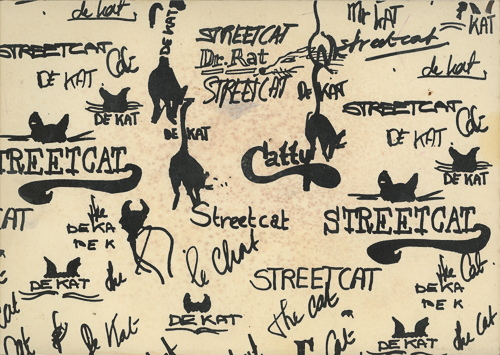 de kat.
STREETCAT
DE KAT
DE KAT
DE KAT
STREETCAT
Dr. Rat
STREETCAT
DE KAT
DE KAT
Mr KAT
KAT
Streetcat
de kat.
STREETCAT
DE KAT
DE KAT
TREETCAT
Catty
STREETCAT
CAT
the
DE KA
DE K
Streetcat
le Chat
DE KAT
the
STREETCAT
the Cat
the Cat.
DE KA
DE K
DE KAT
the
Cat
de Kat
Cat.
Cat
de Kat
DE KAT